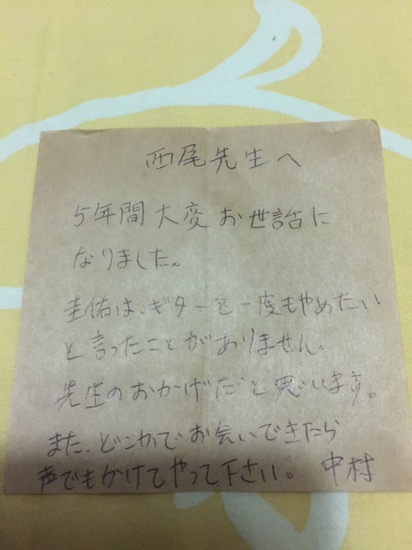 西尾先生へ
5年間大変お世話に
なりました。
圭佑は、ギターを一度もやめたい
と言ったことがありません。
先生のおかげだと思います。
また、どこかでお会いできたら
声でもかけてやって下さい。 中村